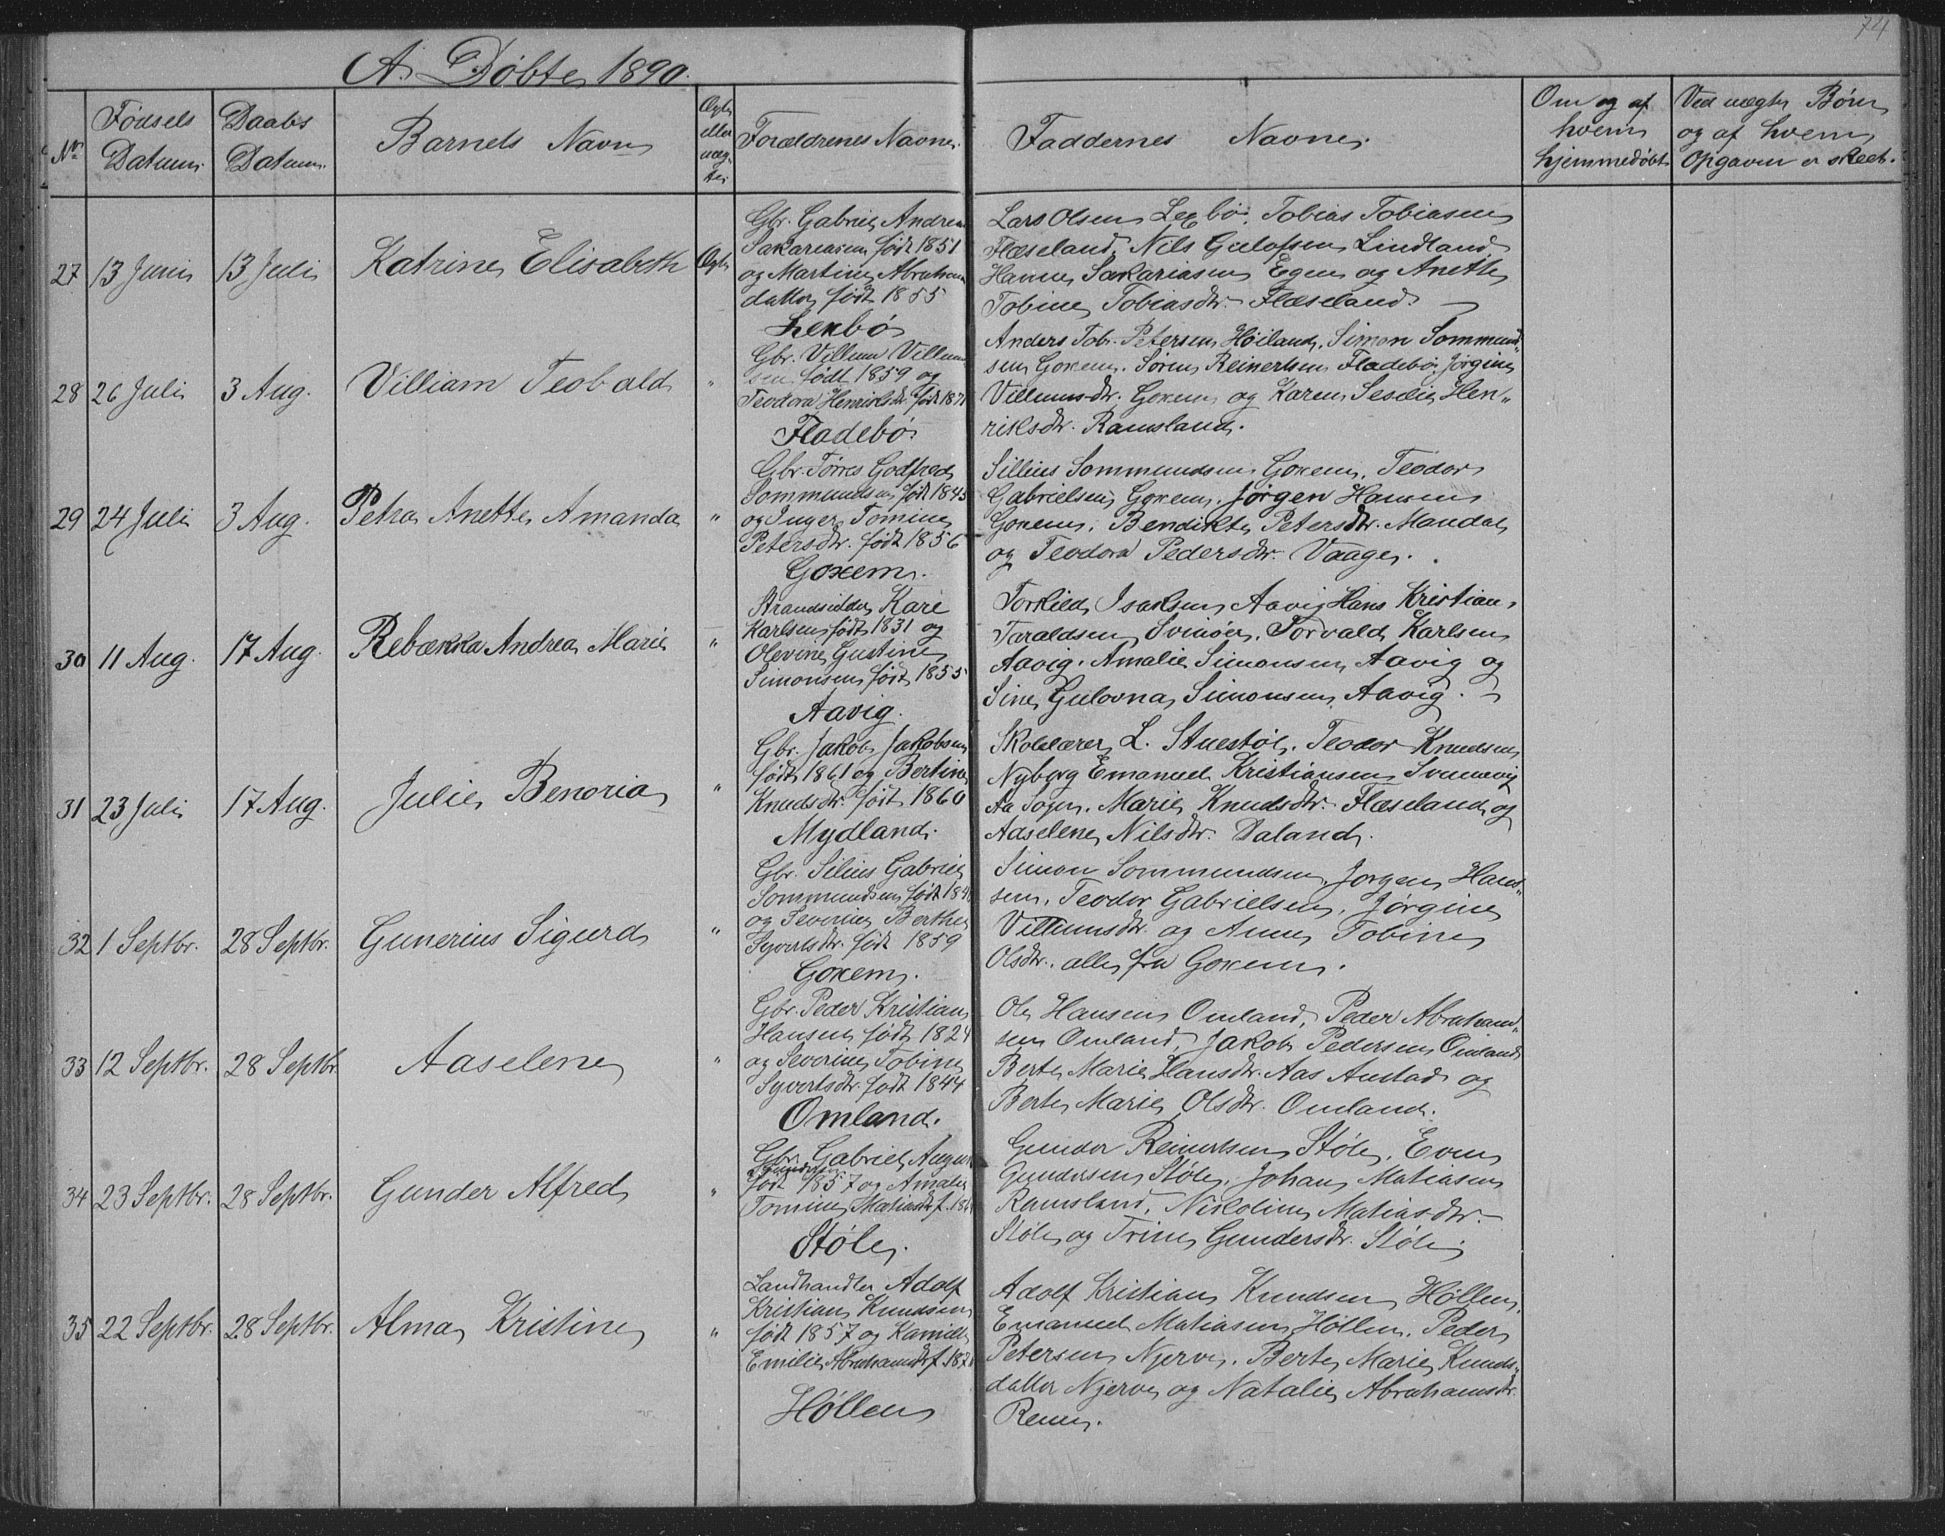 74
A. Døbte 1890.
Nr.
Fødsels Datum
Daabs Datum
Barnets Navn
Ægte eller uægte
Forældrenes Navne
Faddernes Navne
Om og af hvem hjemmedøbt
Ved uægte Børn og af hvem Opgaven er skeet.
27 13 Juni 13 Juli Katrine Elisabeth Ægte
Gbr. Gabriel Andreas
Sakariasen født 1851
og Martine Abraham
datter født 1855
Lexbø
Lars Olsen Lexbø, Tobias Tobiasen
Flæseland, Nils Gulofsen Lindland
Hanne Sakariasen Egen og Anette
Tobine Tobiasdtr. Flæseland
28 26 Juli 3 Aug. Villiam Teobald "
Gbr. Villum Villum
sen født 1859 og
Teodora Henriksdtr. født 1871
Fladebø
Anders Tob. Petersen Høiland, Simon Sommund„
sen Goxem. Søren Reinertsen Fladebø, Jørgine
Villumsdtr. Goxem og Karen Seselie Hen„
riksdtr. Ramsland.
29 24 Juli 3 Aug. Petra Anette Amanda "
Gbr. Tørres Godfred
Sommundsen født 1845
og Inger Tomine
Petersdtr. født 1856
Goxem.
Sillius Sommundsen Goxem, Teodor
Gabrielsen Goxem, Jørgen Hansen
Goxem, Bendikte Petersdtr. Mandal
og Teodora Pedersdtr. Vaage.
30 11 Aug. 17 Aug. Rebækka Andrea Marie "
Strandsidder Kare
Karlsen født 1831 og
Olevine Gustine
Simonsen født 1855
Aavig.
Torkild Isaksen Aavig Hans Kristian
Taraldsen Svinøer, Torvald Karlsen
Aavig, Amalie Simonsen Aavig og
Sine Gulovna Simonsen Aavig.
31 23 Juli 17 Aug. Julie Benoria "
Gbr. Jakob Jakobsen
født 1861 og Bertine
Knudsdtr. født 1860
Mydland.
Skolelærer L. Stuestøl, Teodor Knudsen
Nyborg Emanuel Kristiansen Svennevig
Aa Sogn, Marie Knudsdtr. Flæseland og
Aaselene Nilsdtr. Daland.
32 1 Septbr. 28 Septbr. Gunerius Sigurd "
Gbr. Silius Gabriel
Sommundsen født 184
og Severine Berthe
Syvertsdtr. født 1859
Goxem.
Simon Sommundsen, Jørgen Han„
sen, Teodor Gabrielsen, Jørgine
Villumsdtr. og Anne Tobine
Olsdtr. alle fra Goxem.
33 12 Septbr. 28 Septbr Aaselene "
Gbr. Peder Kristian
Hansen født 1824
og Severine Tobine
Syvertsdtr. født 1844
Omland.
Ole Hansen Omland, Peder Abraham„
sen Omland, Jakob Pedersen Omland
Berte Marie Hansdtr. Aas Austad og
Berte Marie Olsdtr. Omland.
34 23 Septbr. 28 Septbr. Gunder Alfred "
Gbr. Gabriel August
Gundersen
født 1857 og Amalie
Tomine Matiasdtr f. 186
Støle.
Gunder Reinertsen Støle, Even
Gundersen Støle, Johan Matiasen
Ramsland, Nikoline Matiasdtr.
Støle og Trine Gundersdtr. Støle
35 22 Septbr. 28 Septbr. Alma Kristine "
Landhandler Adolf
Kristian Knudsen
født 1857 og Kamilla
Emilie Abrahamsdtr f. 187
Høllen
Adolf Kristian Knudsen Høllen,
Emanuel Matiasen Høllen, Peder
Petersen Njerve, Berte Marie Knuds„
datter Njerve og Natalie Abrahamsdtr.
Renn.